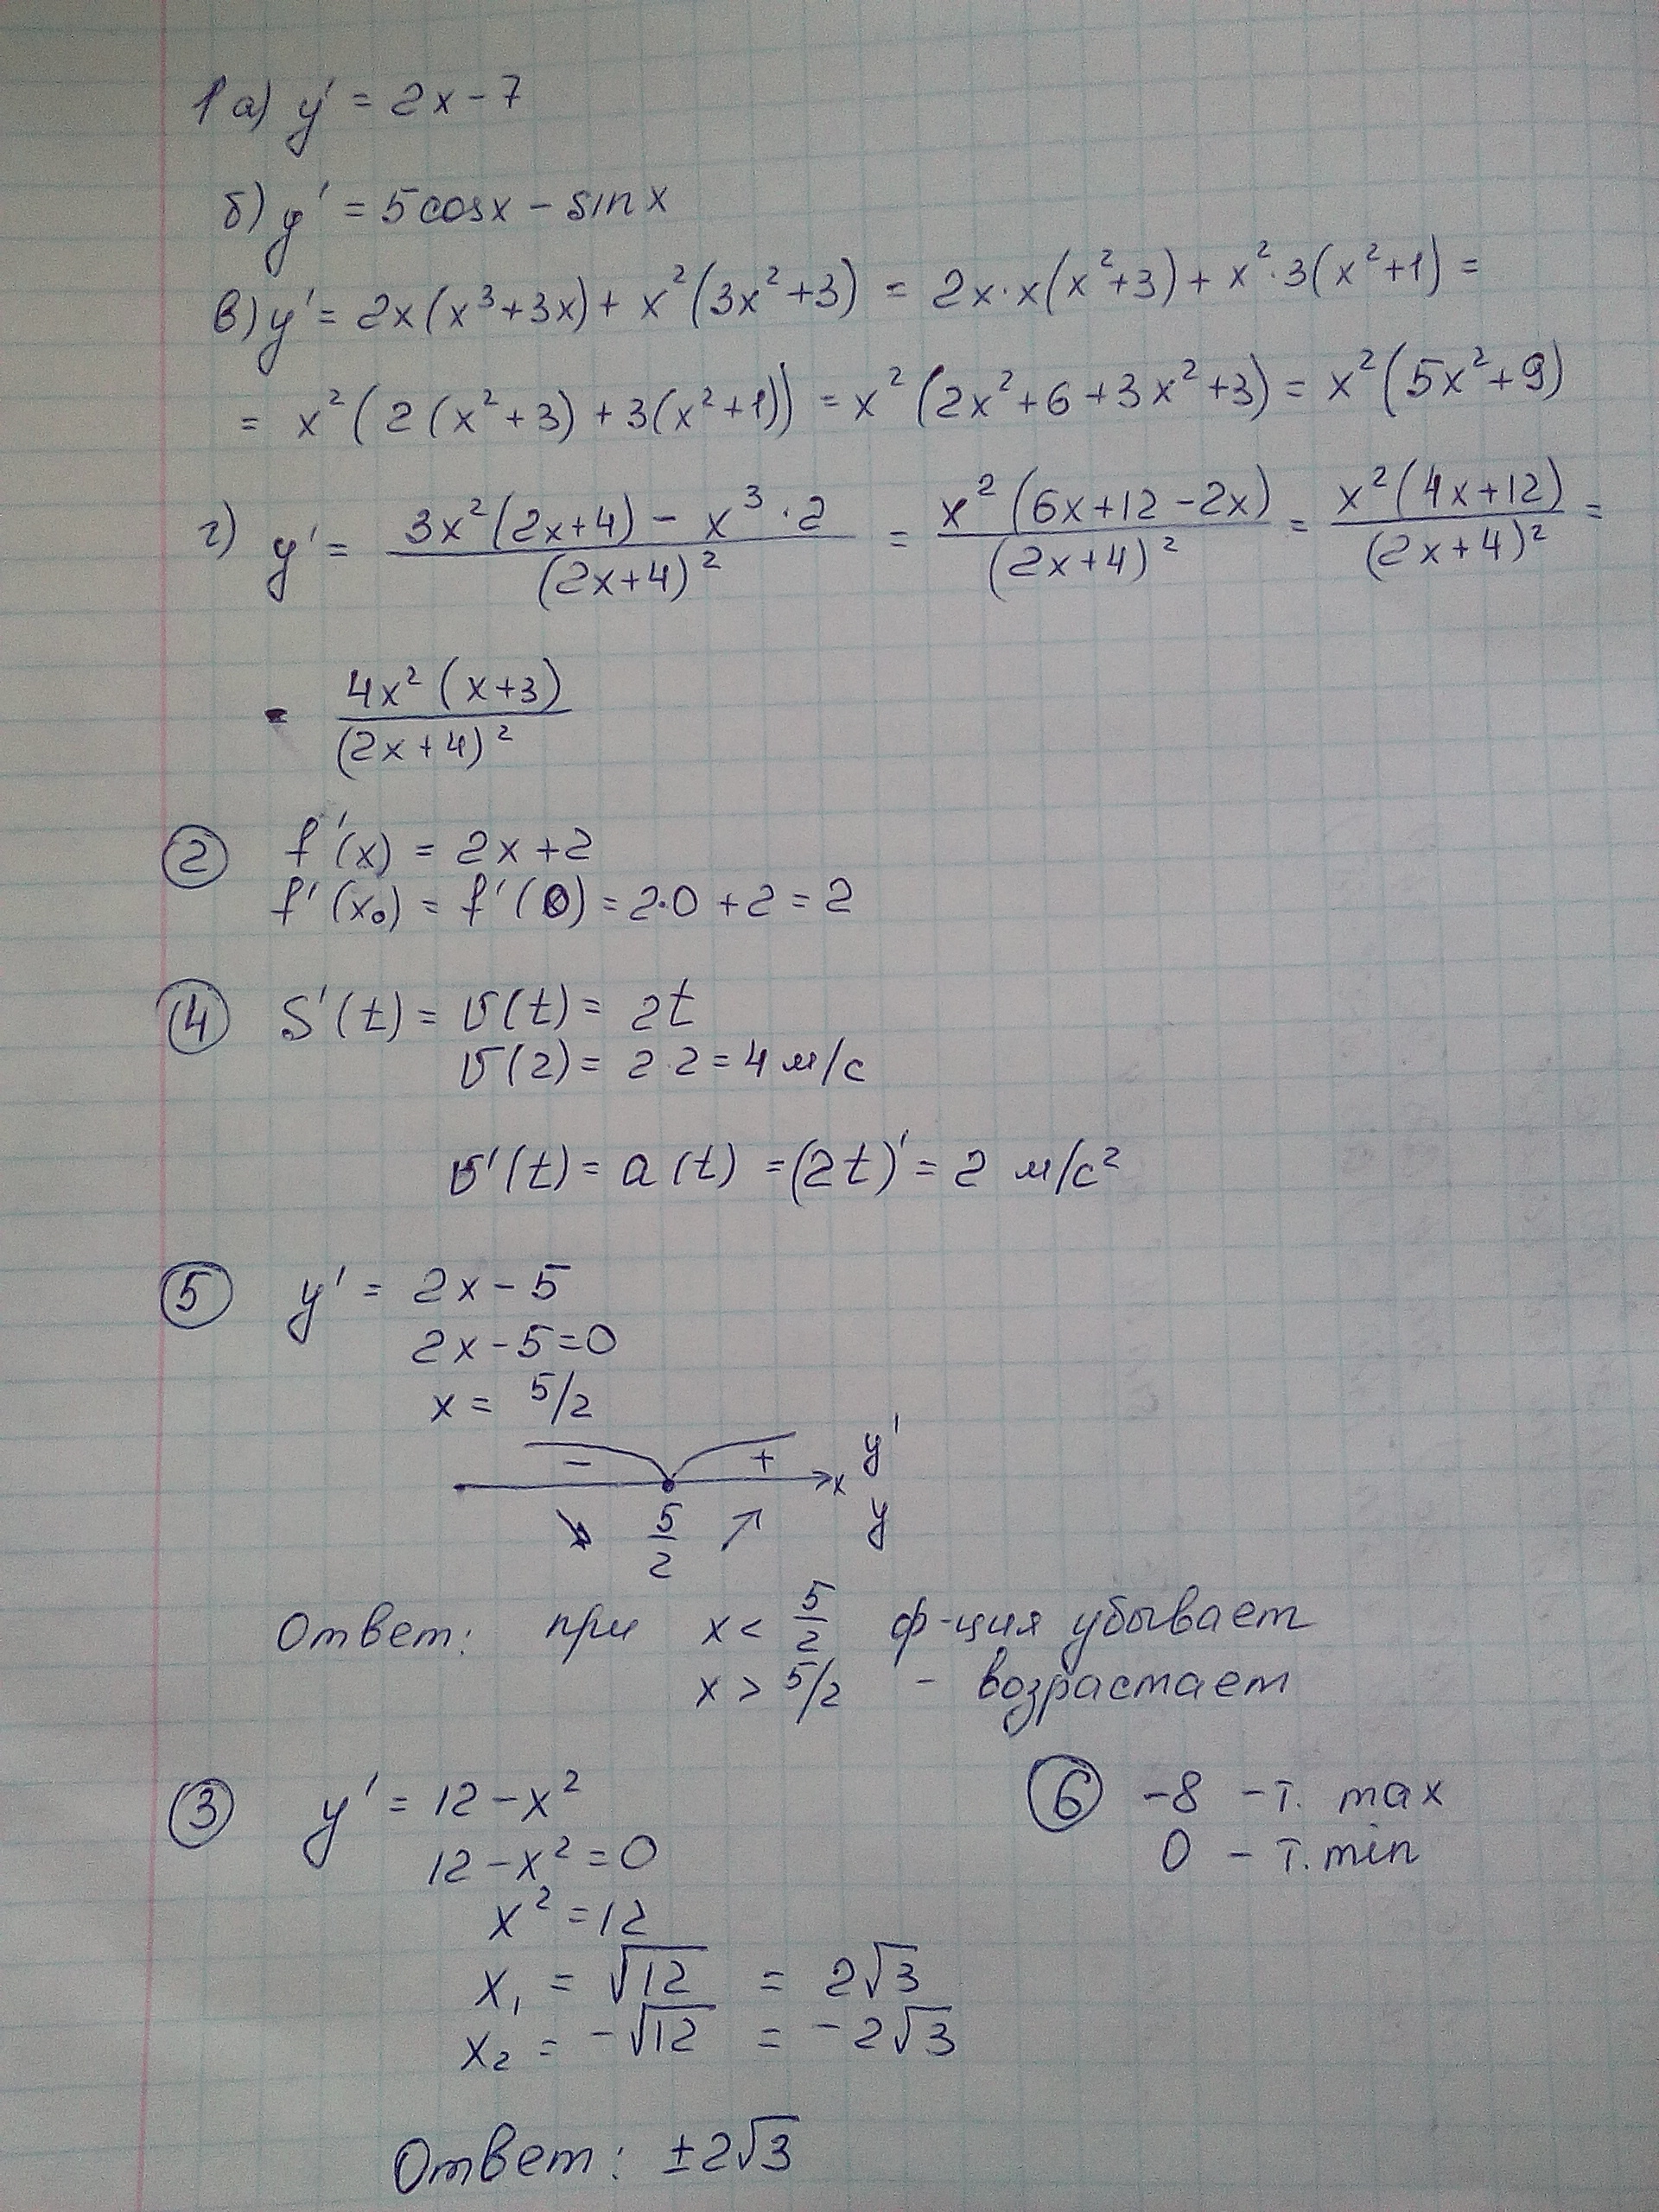 1 а) y' = 2x - 7
б) y' = 5cosx - sinx
в) y' = 2x(x³+3x) + x²(3x²+3) = 2x·x(x²+3) + x²·3(x²+1) =
= x²(2(x²+3) + 3(x²+1)) = x²(2x²+6+3x²+3) = x²(5x²+9)
г) y' = (3x²(2x+4) - x³·2)/(2x+4)² = x²(6x+12-2x)/(2x+4)² = x²(4x+12)/(2x+4)² =
= 4x²(x+3)/(2x+4)²
② f'(x) = 2x+2
f'(x₀) = f'(0) = 2·0 + 2 = 2
④ S'(t) = v(t) = 2t
v(2) = 2·2 = 4 м/с
v'(t) = a(t) = (2t)' = 2 м/с²
⑤ y' = 2x - 5
2x - 5 = 0
x = 5/2
- + y'
x
↘ 5/2 ↗ y
Ответ: при x < 5/2 ф-ция убывает
x > 5/2 - возрастает
③ y' = 12 - x²
12 - x² = 0
x² = 12
x₁ = √12 = 2√3
x₂ = -√12 = -2√3
Ответ: ±2√3
⑥ -8 - т. max
0 - т. min